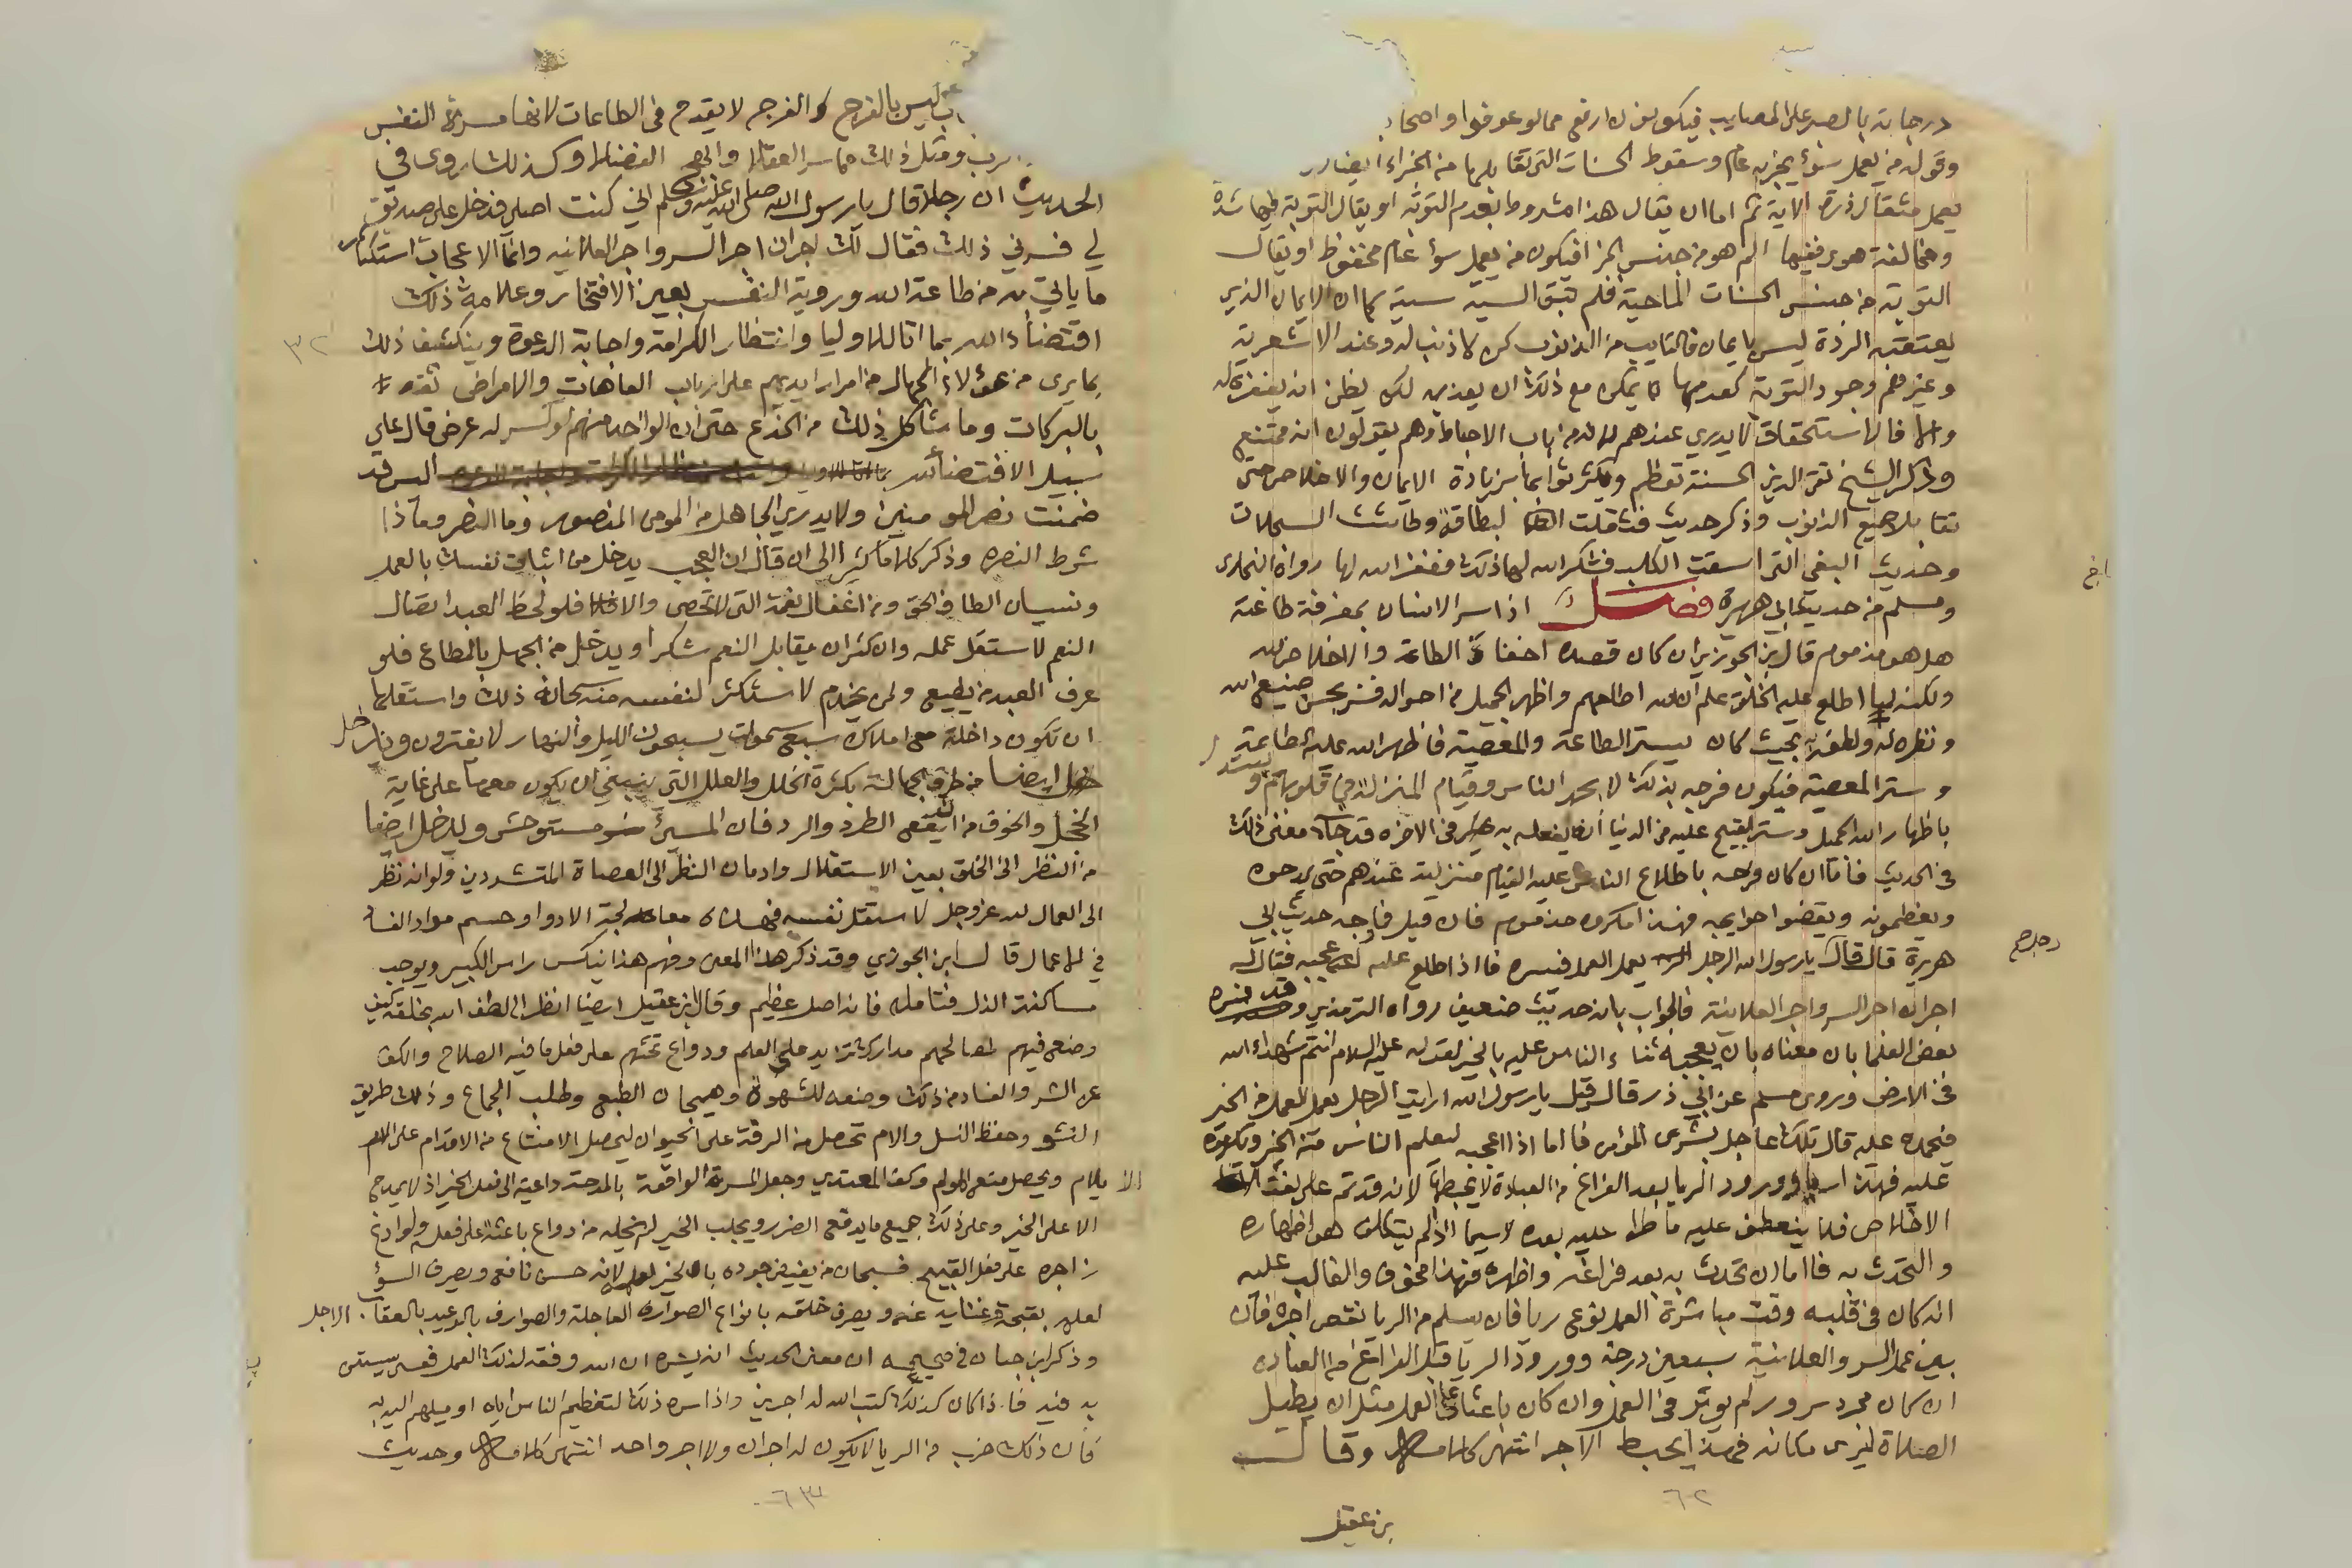 درجاته بالصبر على المصايب فيكون له ارفع مما لو عوفوا واصحا
وقوله من يعمل سوأ يجز به عام وسقوط الحسنات التي تقابلها من الجزاء ايضا
يعمل مثقال ذرة الاية ثم اما ان يقال هذا مشروط بعدم التوبة او يقال التوبة فيها شدة
ومخالفة هوى ففيها الم هو من جنس الجزا فيكون من يعمل سوأ عام محفوظ او يقال
التوبة من جنس الحسنات الماحية فلم تبق السية سية كما ان الايمان الذي
يعتقبه الردة ليس بايمان فالتايب من الذنوب كمن لا ذنب له وعند الاشعرية
وغيرهم وجود التوبة كعدمها لا يمكن مع ذلك ان يعذبه لكن يظن انه يغفر له
والا فالاستحقاق لا يدري عندهم لانه من باب الاحباط وهم يقولون انه ممتنع
وذكر الشيخ تقي الدين الحسنة تعظم ويكثر ثوابها بزيادة الايمان والاخلاص حتى
تقابل جميع الذنوب وذكر حديث فثقلت البطاقة وطاشت السجلات
وحديث البغي التي اسقت الكلب فشكر الله لها ذلك فغفر الله لها رواه البخاري
ومسلم من حديث ابي هريرة فصل اذا سر الانسان بمعرفة طاعته
هل هو مذموم قال ابن الجوزي ان كان قصده اخفاء الطاعة والاخلاص لله
ولكنه لما اطلع عليه الخلق علم ان الله اطلعهم واظهر الجميل من احواله فسر بحسن صنيع الله
ونظره له ولطفه به بحيث كان يستر الطاعة والمعصية فاظهر الله عليه الطاعة
وستر المعصية فيكون فرحه بذلك لا بحمد الناس وقيام المنزلة في قلوبهم و
باظهار الله الجميل وستر القبيح عليه في الدنيا انه يفعله به في الاخرة قد جاء معنى ذلك
في الحديث فاما ان كان فرحه باطلاع الناس عليه لقيام منزلته عندهم حتى يمدحوه
ويعظمونه ويقضوا حوايجه فهذا مكروه مذموم فان قيل فما وجه حديث ابي
هريرة قال قال يارسول الله الرجل يعمل العمل فيسره فاذا اطلع عليه اعجبه فقال له
اجران اجر السر واجر العلانية فالجواب بانه حديث ضعيف رواه الترمذي وقد فسره
بعض العلما بان معناه بان يعجبه ثناء الناس عليه بالخير لقوله عليه السلام انتم شهداء الله
في الارض وروى مسلم عن ابي ذر قال قيل يارسول الله ارايت الرجل يعمل العمل من الخير
فيحمده عليه قال تلك عاجل بشرى المؤمن فاما اذا اعجبه ليعلم الناس منه الخير ويكرموه
عليه فهذا رياء وورود الريا بعد الفراغ من العبادة لا يحبطها لانه قد تم على نعت
الاخلاص فلا ينعطف عليه ما طرا عليه بعده لاسيما اذا لم يتكلف هو اظهاره
والتحدث به فاما ان تحدث به بعد فراغه واظهره فهذا مخوف والغالب عليه
انه كان في قلبه وقت مباشرة العمل نوع ريا فان سلم من الريا نقص اجره فان
بين عمل السر والعلانية سبعين درجة وورود الريا قبل الفراغ من العبادة
ان كان مجرد سرور لم يوثر في العمل وان كان باعثا على العمل مثل ان يطيل
الصلاة ليرى مكانه فهذا يحبط الاجر انتهى كلامه وقال
بن عقيل
٦٢
ليس بالفرح والفرح لا يقدح في الطاعات لانها مسرة النفس
الرب ومثل ذلك مما سر العقلا وابهج الفضلا وكذلك روى في
الحديث ان رجلا قال يارسول الله صلى الله عليه وسلم اني كنت اصلي فدخل علي صديق
لي فسرني ذلك فقال لك اجران اجر السر واجر العلانيه وانما الاعجاب استكثار
ما ياتي به من طاعة الله وروية النفس بعين الافتخار وعلامة ذلك
اقتضاء الله بما اتا الاوليا وانتظار الكرامة واجابة الدعوة وينكشف ذلك
بما يرى من هؤلاء الجهال من امرار ايديهم على ارباب العاهات والامراض ثقة
بالبركات وما شاكل ذلك من الخدع حتى ان الواحد منهم لو كسر له عرض قال على
سبيل الاقتضاء لله اليس قد
ضمنت نصر المومنين ولا يدري الجاهل من المومن المنصور وما النصر وماذا
شرط النصرة وذكر كلاما كثيرا الى ان قال ان العجب يدخل من اثبات نفسك بالعمل
ونسيان الطاف الحق ومن اغفال نعمه التي لا تحصى والا فلو لحظ العبد اتصال
النعم لاستقل عمله وان كثر ان يقابل النعم شكرا ويدخل من الجهل بالمطاع فلو
عرف العبد من يطيع ولمن يخدم لاستكثر لنفسه منه سبحانه ذلك واستقلها
ان تكون داخلة مع املاك سبع سموات يسبحون الليل والنهار لا يفترون ويدخل
ايضا من طرف الجهالة بكثرة الخلل والعلل التي ينبغي ان يكون معها على غاية
الخجل والخوف من ان يقع الطرد والرد فان المسئ مستوحش ويدخل ايضا
من النظر الى الخلق بعين الاستقلال وادمان النظر الى العصاة المتشردين ولو انه نظر
الى العمال لله عز وجل لاستقل نفسه فهذه معالجة الادوا وحسم مواد الفساد
في الاعمال قال ابن الجوزي وقد ذكر هذا المعنى وفهم هذا ينكس راس الكبير ويوجب
مساكنة الذل فتامله فانه اصل عظيم وقال ابن عقيل ايضا انظر الى لطف الله بخلقه كيف
وضع فيهم لمصالحهم مدارك تزيد على العلم ودواع تحثهم على فعل ما فيه الصلاح والكف
عن الشر والفساد من ذلك وضعه للشهوة وهيجان الطبع وطلب الجماع وذلك طريق
النشو وحفظ النسل والالام تحصل من الرقة على الحيوان ليحصل الامتناع من الاقدام على
الايلام ويحصل منع المولم وكف المعتدي وجعل المسرة الواقعة بالمدحة داعية الى فعل الخير اذ لا يمدح
الا على الخير وعلى ذلك جميع ما يدفع الضرر ويجلب الخير لم يخله من دواع باعثة على فعله ولوادغ
زاجره على فعل القبيح فسبحان من يفيض جوده بالخير لعلمه لانه حسن نافع ويصرف السوء
لعلمه بقبحه وغنايه عنه ويصرف خلقه بانواع الصوارف العاجلة والصوارف بالوعيد بالعقاب الاجل
وذكر ابن حبان في صحيحه ان معنى الحديث انه يسره ان الله وفقه لذلك العمل فعسى يستن
به فيه فاذا كان كذلك كتب الله له اجرين واذا سره ذلك لتعظيم الناس اياه او ميلهم اليه
فان ذلك ضرب من الريا لا يكون له اجران ولا اجر واحد انتهى كلامه وحديث
٦٣